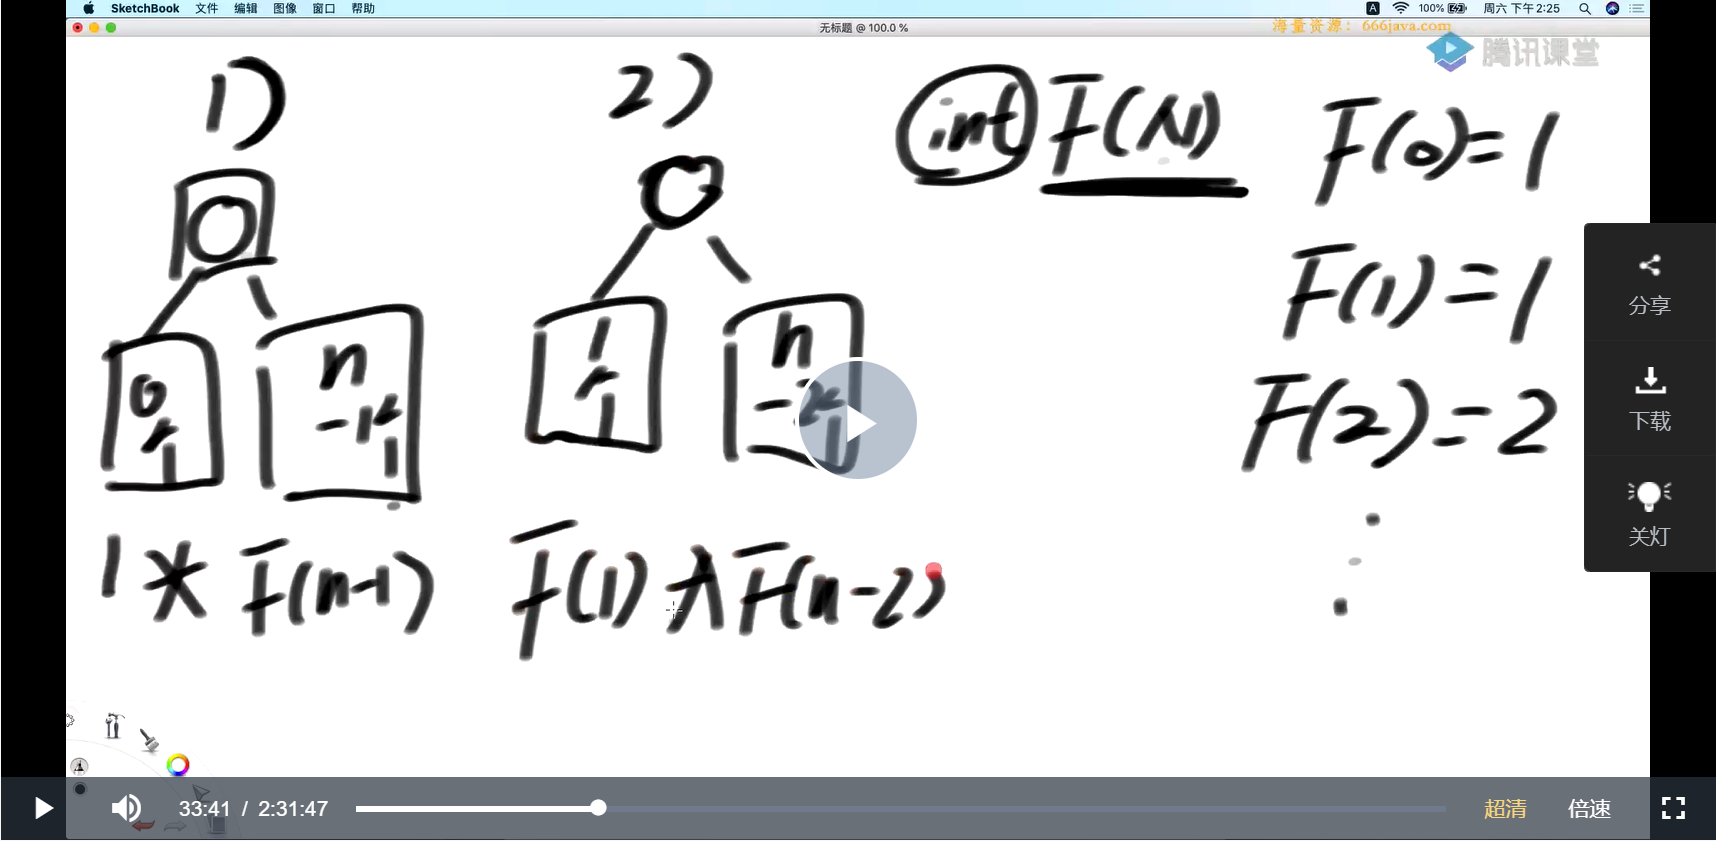 SketchBook 文件 编辑 图像 窗口 帮助
A 100% 周六 下午2:25
无标题 @ 100.0 %
海量资源：666java.com
腾讯课堂
1) 2) int F(N) F(0)=1
F(1)=1
F(2)=2
0个 n-1个
1个 n-2个
1 * F(n-1) F(1) * F(n-2)
分享
下载
关灯
33:41 / 2:31:47
超清 倍速